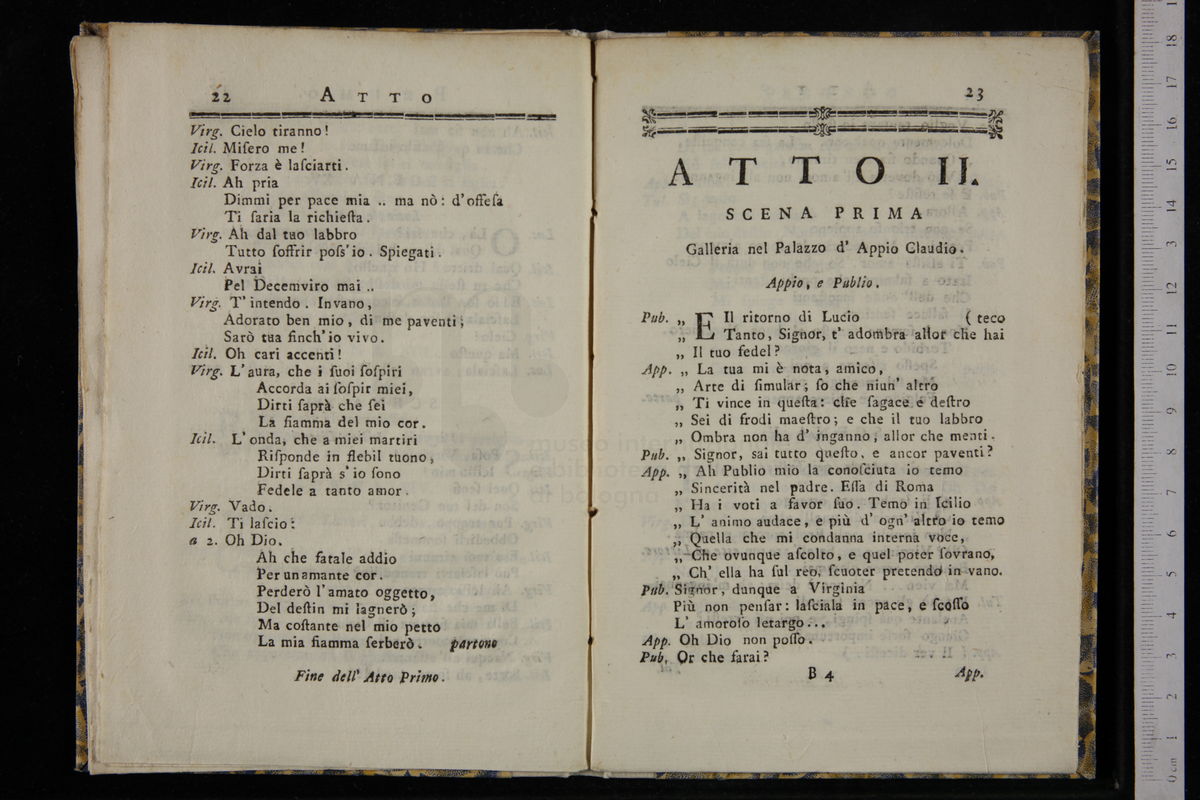 22 ATTO
Virg. Cielo tiranno!
Icil. Miſero me!
Virg. Forza è laſciarti.
Icil. Ah pria
Dimmi per pace mia .. ma nò: d'offeſa
Ti ſaria la richieſta.
Virg. Ah dal tuo labbro
Tutto ſoffrir poſs'io. Spiegati.
Icil. Avrai
Pel Decemviro mai ..
Virg. T'intendo. Invano,
Adorato ben mio, di me paventi;
Sarò tua finch'io vivo.
Icil. Oh cari accenti!
Virg. L'aura, che i ſuoi ſoſpiri
Accorda ai ſoſpir miei,
Dirti ſaprà che ſei
La fiamma del mio cor.
Icil. L'onda, che a miei martiri
Riſponde in flebil tuono,
Dirti ſaprà s'io ſono
Fedele a tanto amor.
Virg. Vado.
Icil. Ti laſcio:
a 2. Oh Dio.
Ah che fatale addio
Per un amante cor.
Perderò l'amato oggetto,
Del deſtin mi lagnerò;
Ma coſtante nel mio petto
La mia fiamma ſerberò. partono
Fine dell' Atto Primo.
23
ATTO II.
SCENA PRIMA
Galleria nel Palazzo d' Appio Claudio.
Appio, e Publio.
Pub. „ E Il ritorno di Lucio ( teco
„ Tanto, Signor, t' adombra allor che hai
„ Il tuo fedel?
App. „ La tua mi è nota, amico,
„ Arte di ſimular; ſo che niun' altro
„ Ti vince in queſta: che ſagace e deſtro
„ Sei di frodi maeſtro; e che il tuo labbro
„ Ombra non ha d' inganno, allor che menti.
Pub. „ Signor, sai tutto queſto, e ancor paventi?
App. „ Ah Publio mio la conoſciuta io temo
„ Sincerità nel padre. Eſſa di Roma
„ Ha i voti a favor ſuo. Temo in Icilio
„ L' animo audace, e più d' ogn' altro io temo
„ Quella che mi condanna interna voce,
„ Che ovunque aſcolto, e quel poter ſovrano,
„ Ch' ella ha ſul reo, ſcuoter pretendo in vano.
Pub. Signor, dunque a Virginia
Più non penſar: laſciala in pace, e ſcoſſo
L' amoroſo letargo...
App. Oh Dio non poſſo.
Pub. Or che farai?
B 4 App.